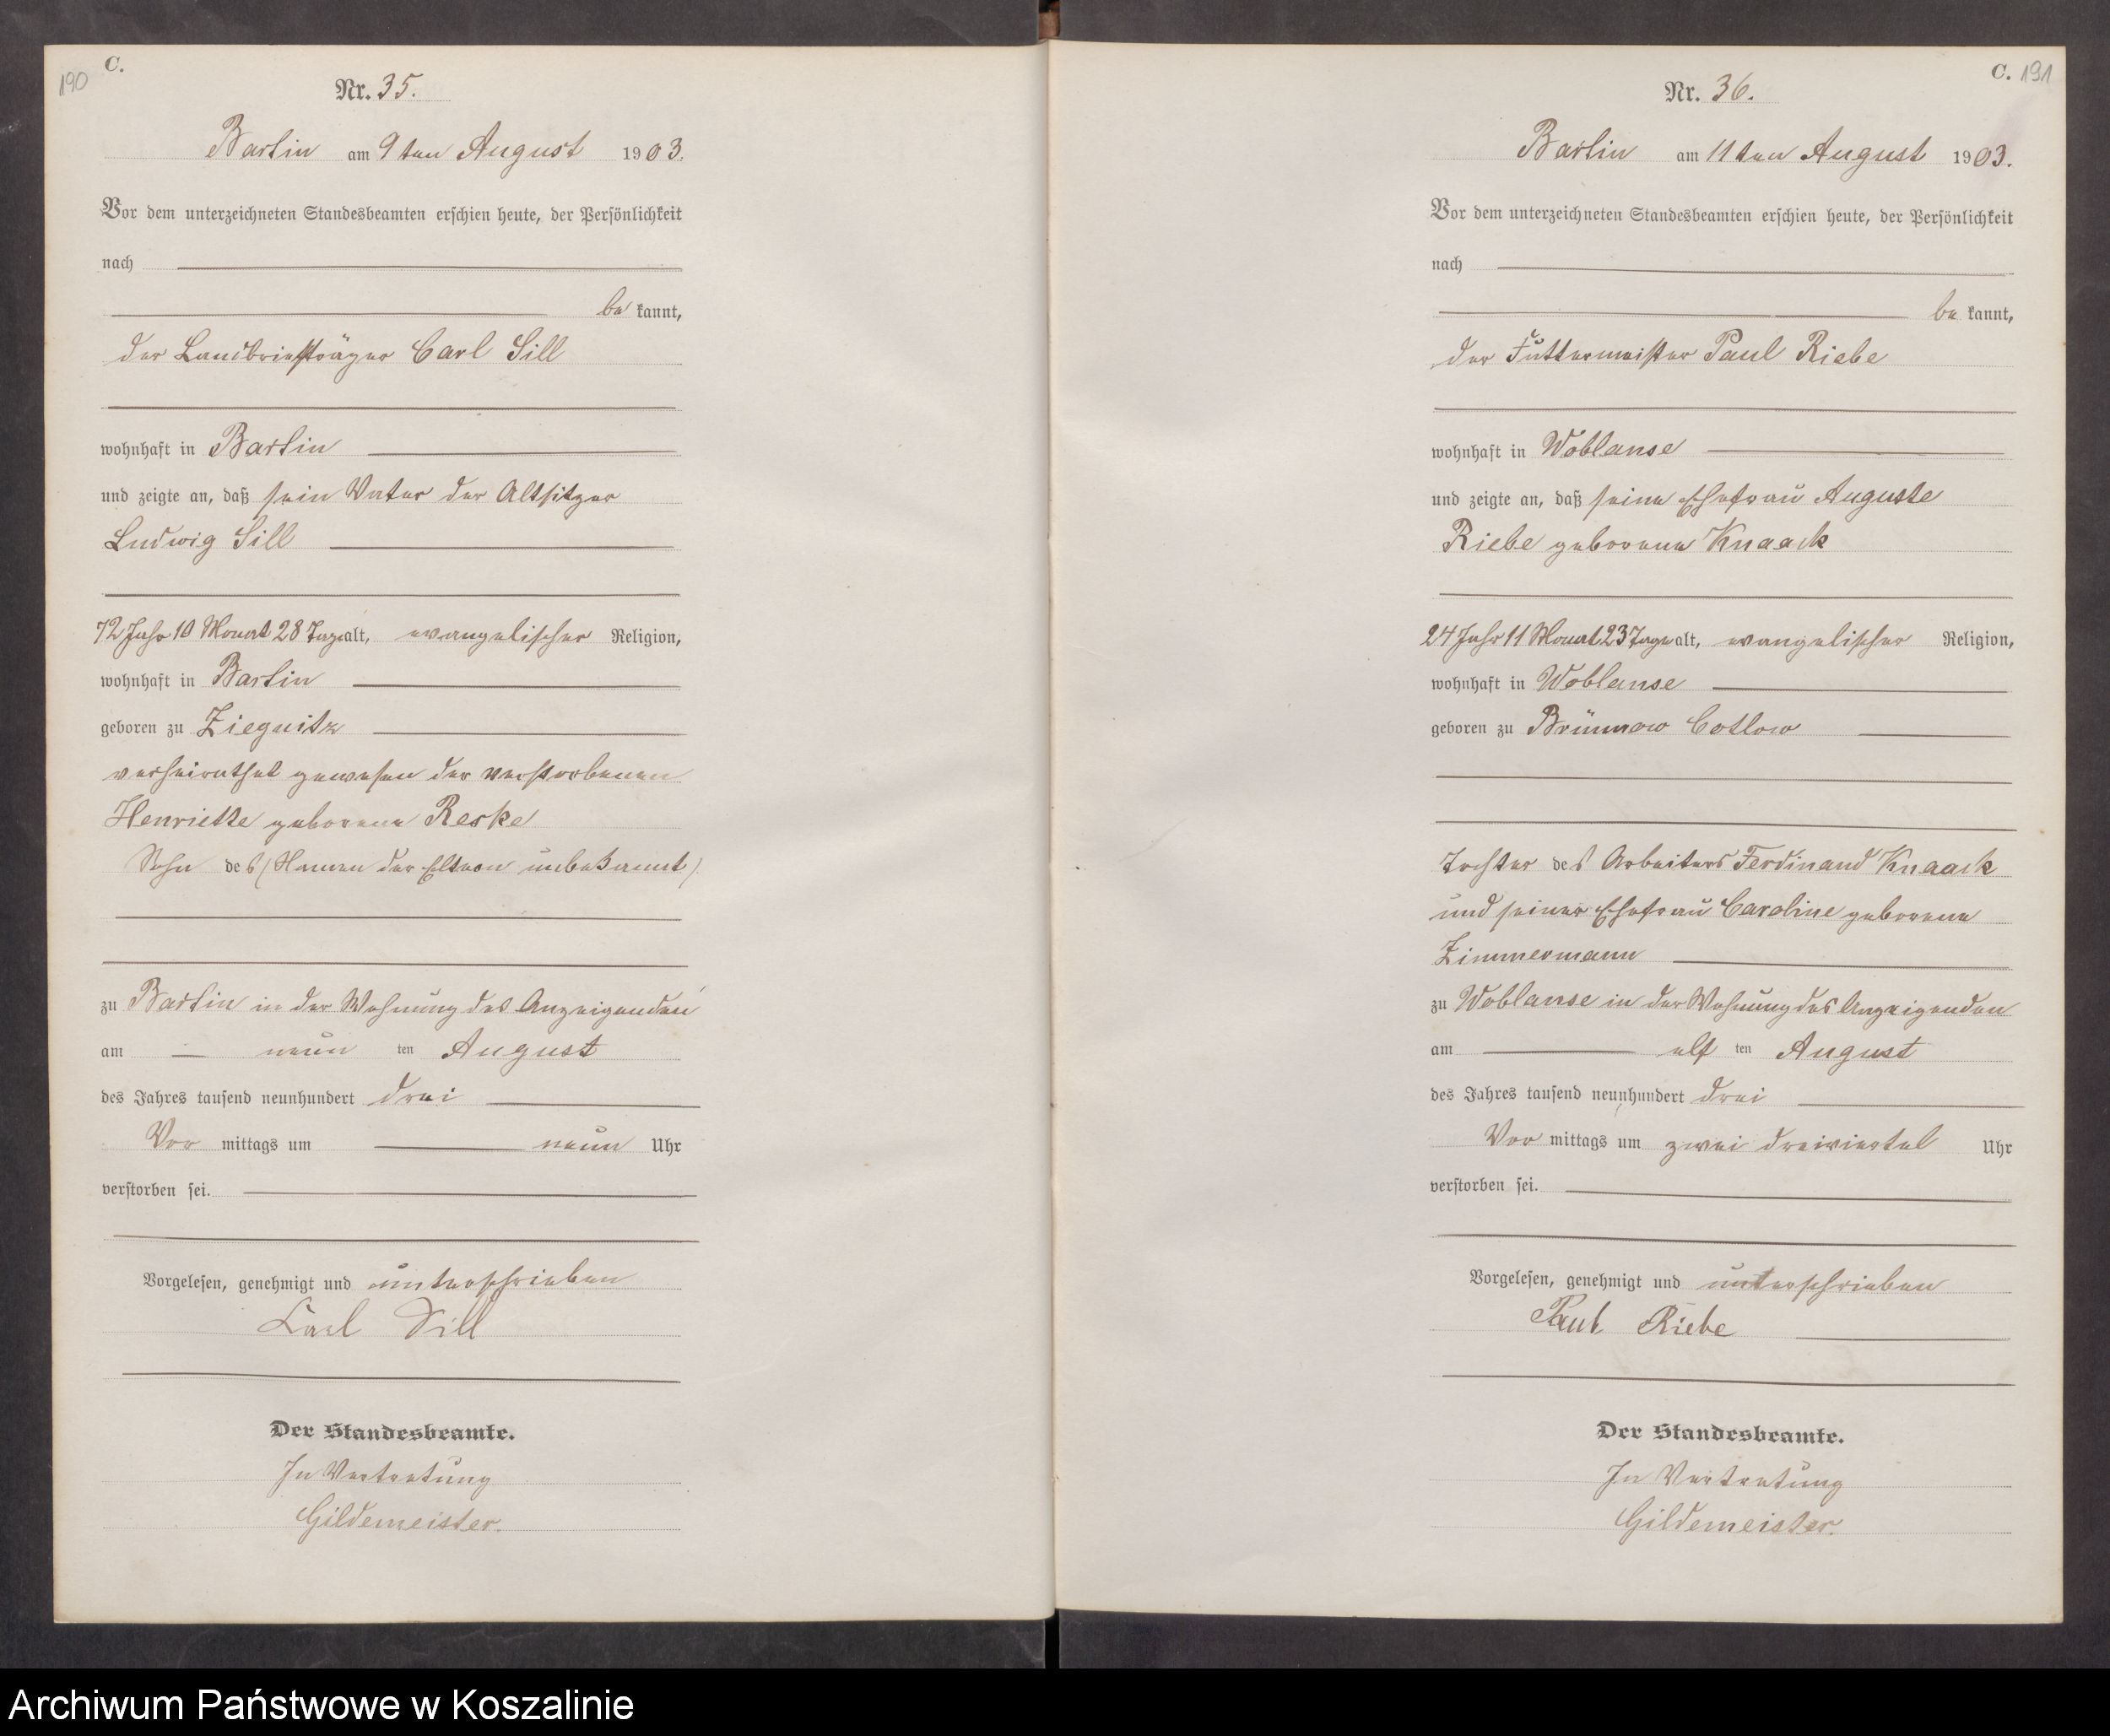 190
C.
Nr. 35.
Bartin am 9ten August 1903.
Vor dem unterzeichneten Standesbeamten erschien heute, der Persönlichkeit
nach
bekannt,
der Landbriefträger Carl Sill
wohnhaft in Bartin
und zeigte an, daß sein Vater der Altsitzer
Ludwig Sill
72 Jahr 10 Monat 28 Tage alt, evangelischer Religion,
wohnhaft in Bartin
geboren zu Ziegnitz
verheirathet gewesen der verstorbenen
Henriette geborene Reske
Sohn des (Namen der Eltern unbekannt)
zu Bartin in der Wohnung des Anzeigenden
am neunten August
des Jahres tausend neunhundert drei
Vormittags um neun Uhr
verstorben sei.
Vorgelesen, genehmigt und unterschrieben
Carl Sill
Der Standesbeamte.
In Vertretung
Gildemeister.
C. 191
Nr. 36.
Bartin am 11ten August 1903.
Vor dem unterzeichneten Standesbeamten erschien heute, der Persönlichkeit
nach
bekannt,
der Futtermeister Paul Riebe
wohnhaft in Woblanse
und zeigte an, daß seine Ehefrau Auguste
Riebe geborene Knaack
24 Jahr 11 Monat 23 Tage alt, evangelischer Religion,
wohnhaft in Woblanse
geboren zu Brünnow Cotlow
Tochter des Arbeiters Ferdinand Knaack
und seiner Ehefrau Caroline geborene
Zimmermann
zu Woblanse in der Wohnung des Anzeigenden
am elften August
des Jahres tausend neunhundert drei
Vormittags um zwei dreiviertel Uhr
verstorben sei.
Vorgelesen, genehmigt und unterschrieben
Paul Riebe
Der Standesbeamte.
In Vertretung
Gildemeister.
Archiwum Państwowe w Koszalinie